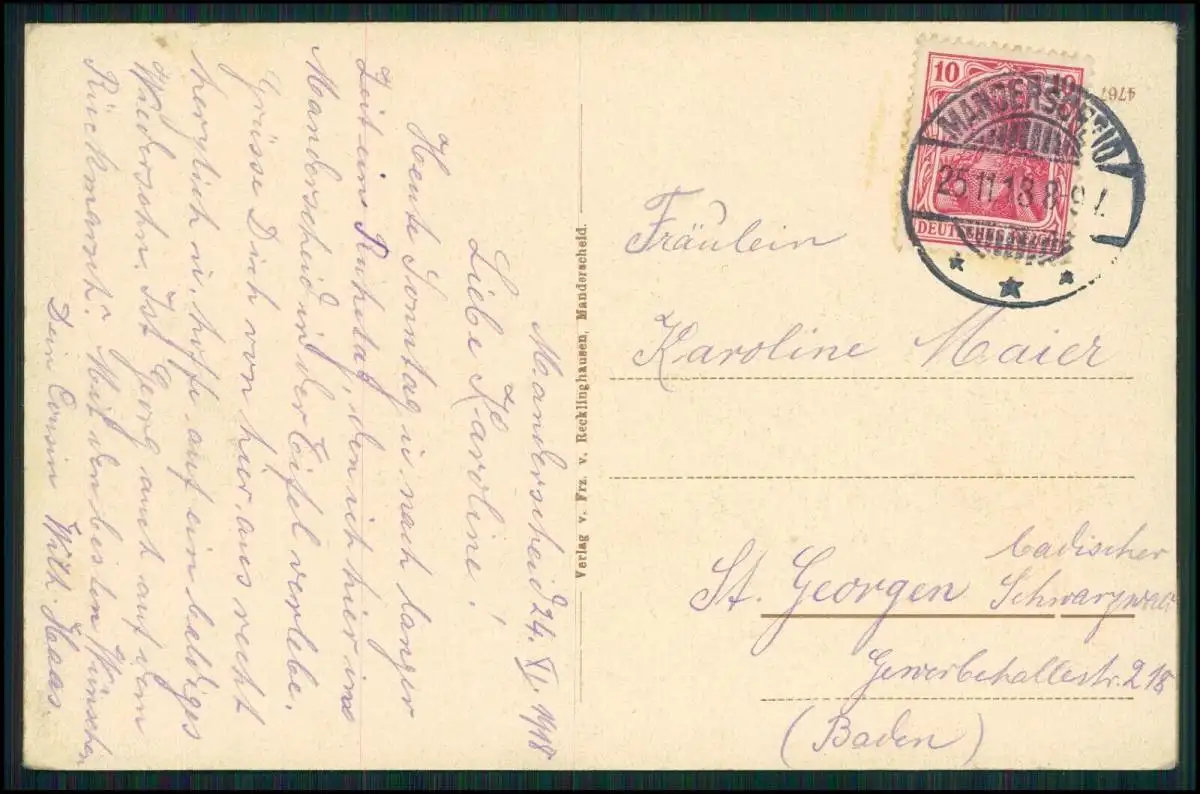 Manderscheid 24. XI. 1918
Liebe Karoline!
Heute Sonntag u. nach langer
Zeit ein Ruhetag, den ich hier in
Manderscheid in der Eifel verlebe.
Grüsse Dich von hier aus recht
herzlich u. hoffe auf ein baldiges
Wiedersehn. Ist Georg auch auf dem
Rückmarsch? Mit den besten Wünschen
Dein Cousin Wilh. Haas.
Verlag v. Frz. v. Recklinghausen, Manderscheid.
4767
10 10
DEUTSCHES REICH
MANDERSCHEID
25 11 18 8-9 V.
Fräulein
Karoline Maier
St. Georgen badischer
Schwarzwald
Gewerbehallestr. 218
(Baden)